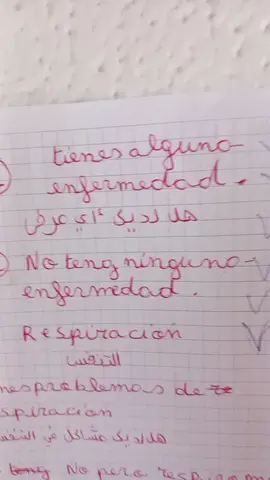 tienes alguno
enfermedad.
هل لديك أي مرض
No teng ninguno
enfermedad.
Respiración
التنفس
nes problemas de
spiración
هل لديك مشاكل في التنفس
No pero